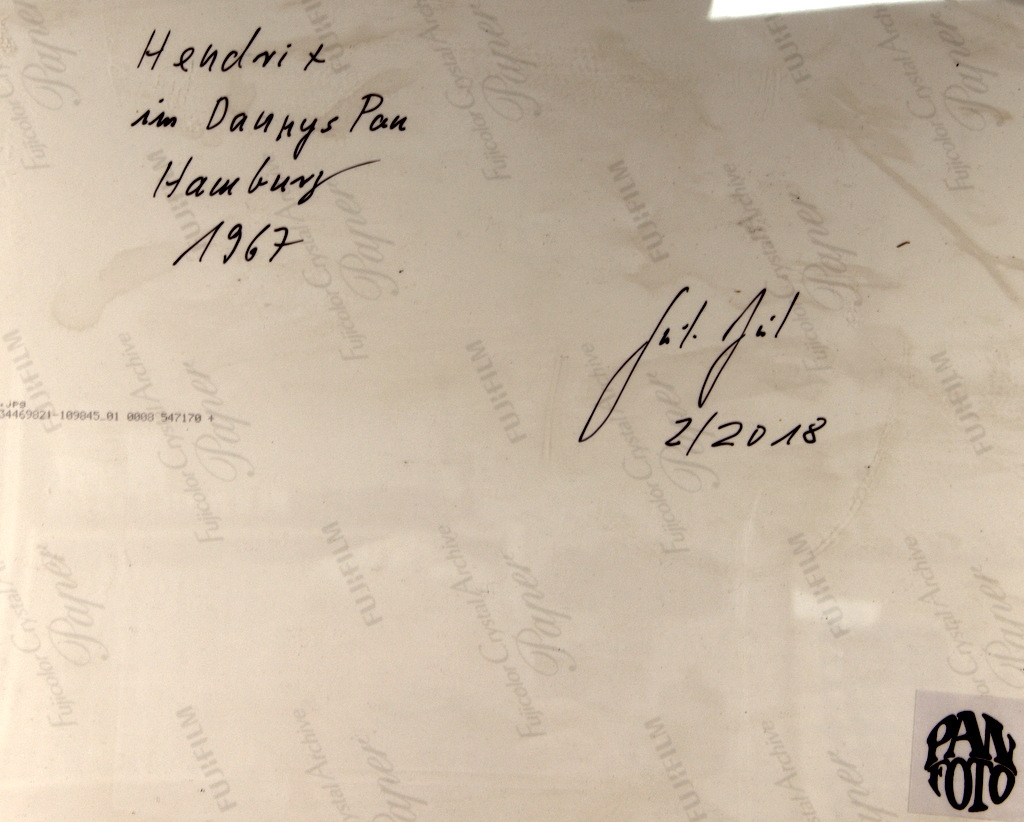 Hendrix
im Dannys Pan
Hamburg
1967
2/2018
.JPG
34469821-109845.01 0008 547170 +
FUJIFILM
Fujicolor Crystal Archive
Paper
PAN
FOTO